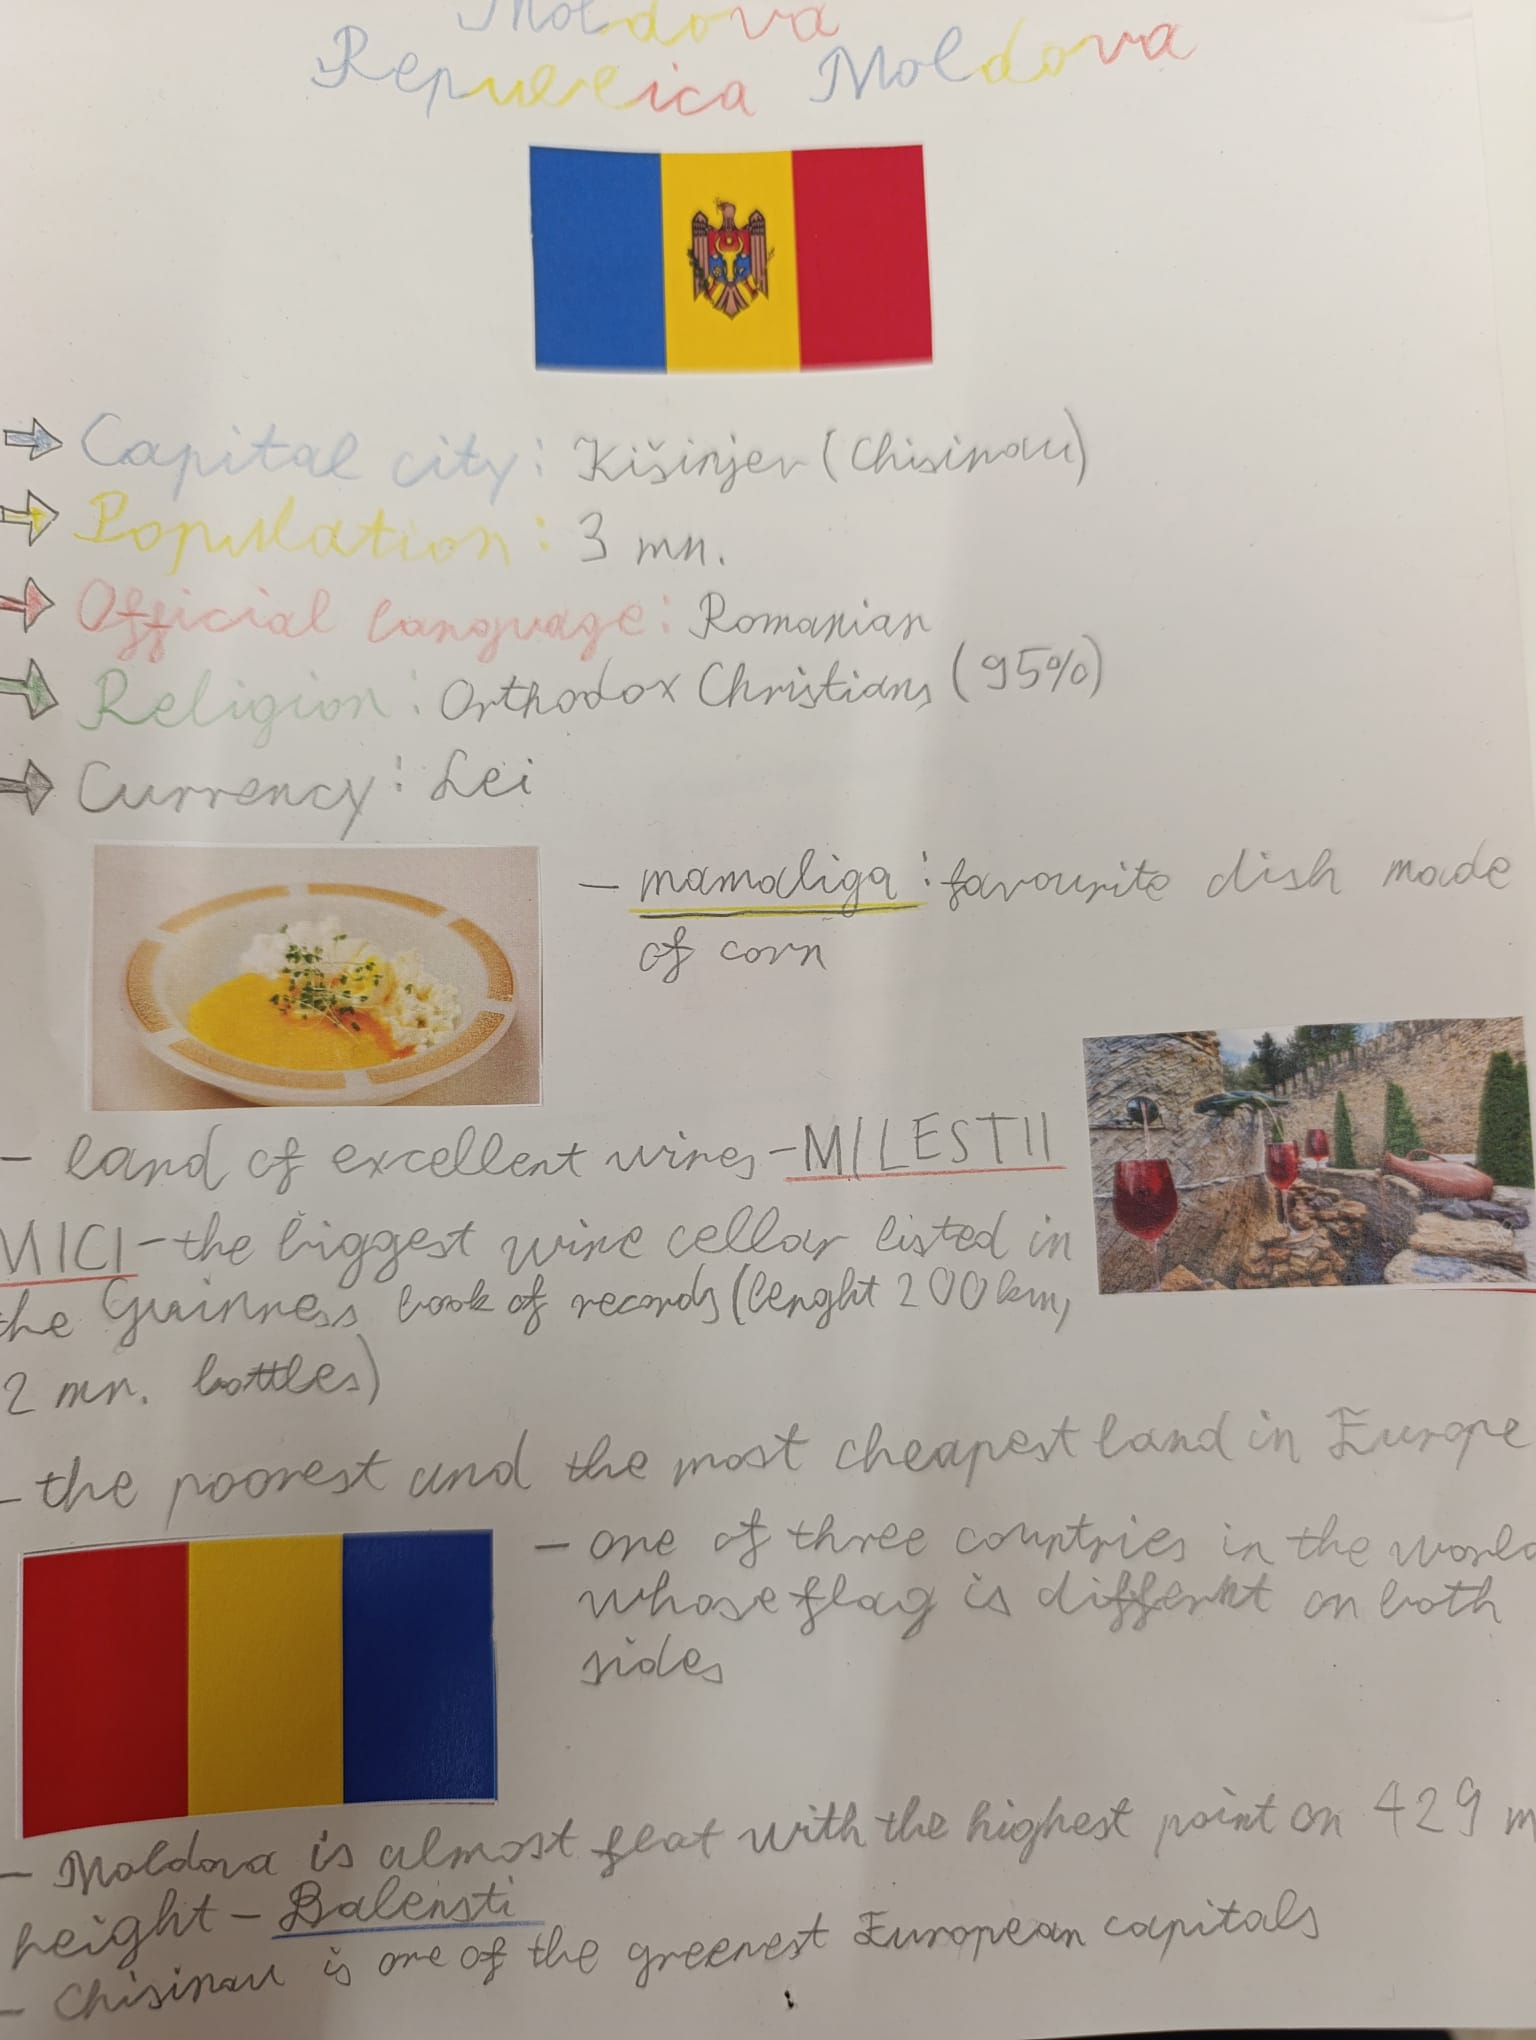 Moldova
Republica Moldova
Capital city: Kišinjev (Chisinau)
Population: 3 mn.
Official language: Romanian
Religion: Orthodox Christians (95%)
Currency: Lei
- mamaliga: favourite dish made
of corn
- land of excellent wines - MILESTII
MICI - the biggest wine cellar listed in
the Guinness book of records (lenght 200 km,
2 mn. bottles)
- the poorest and the most cheapest land in Europe
- one of three countries in the world
whose flag is differnt on both
sides
- Moldova is almost flat with the highest point on 429 m
height - Balensti
- Chisinau is one of the greenest European capitals